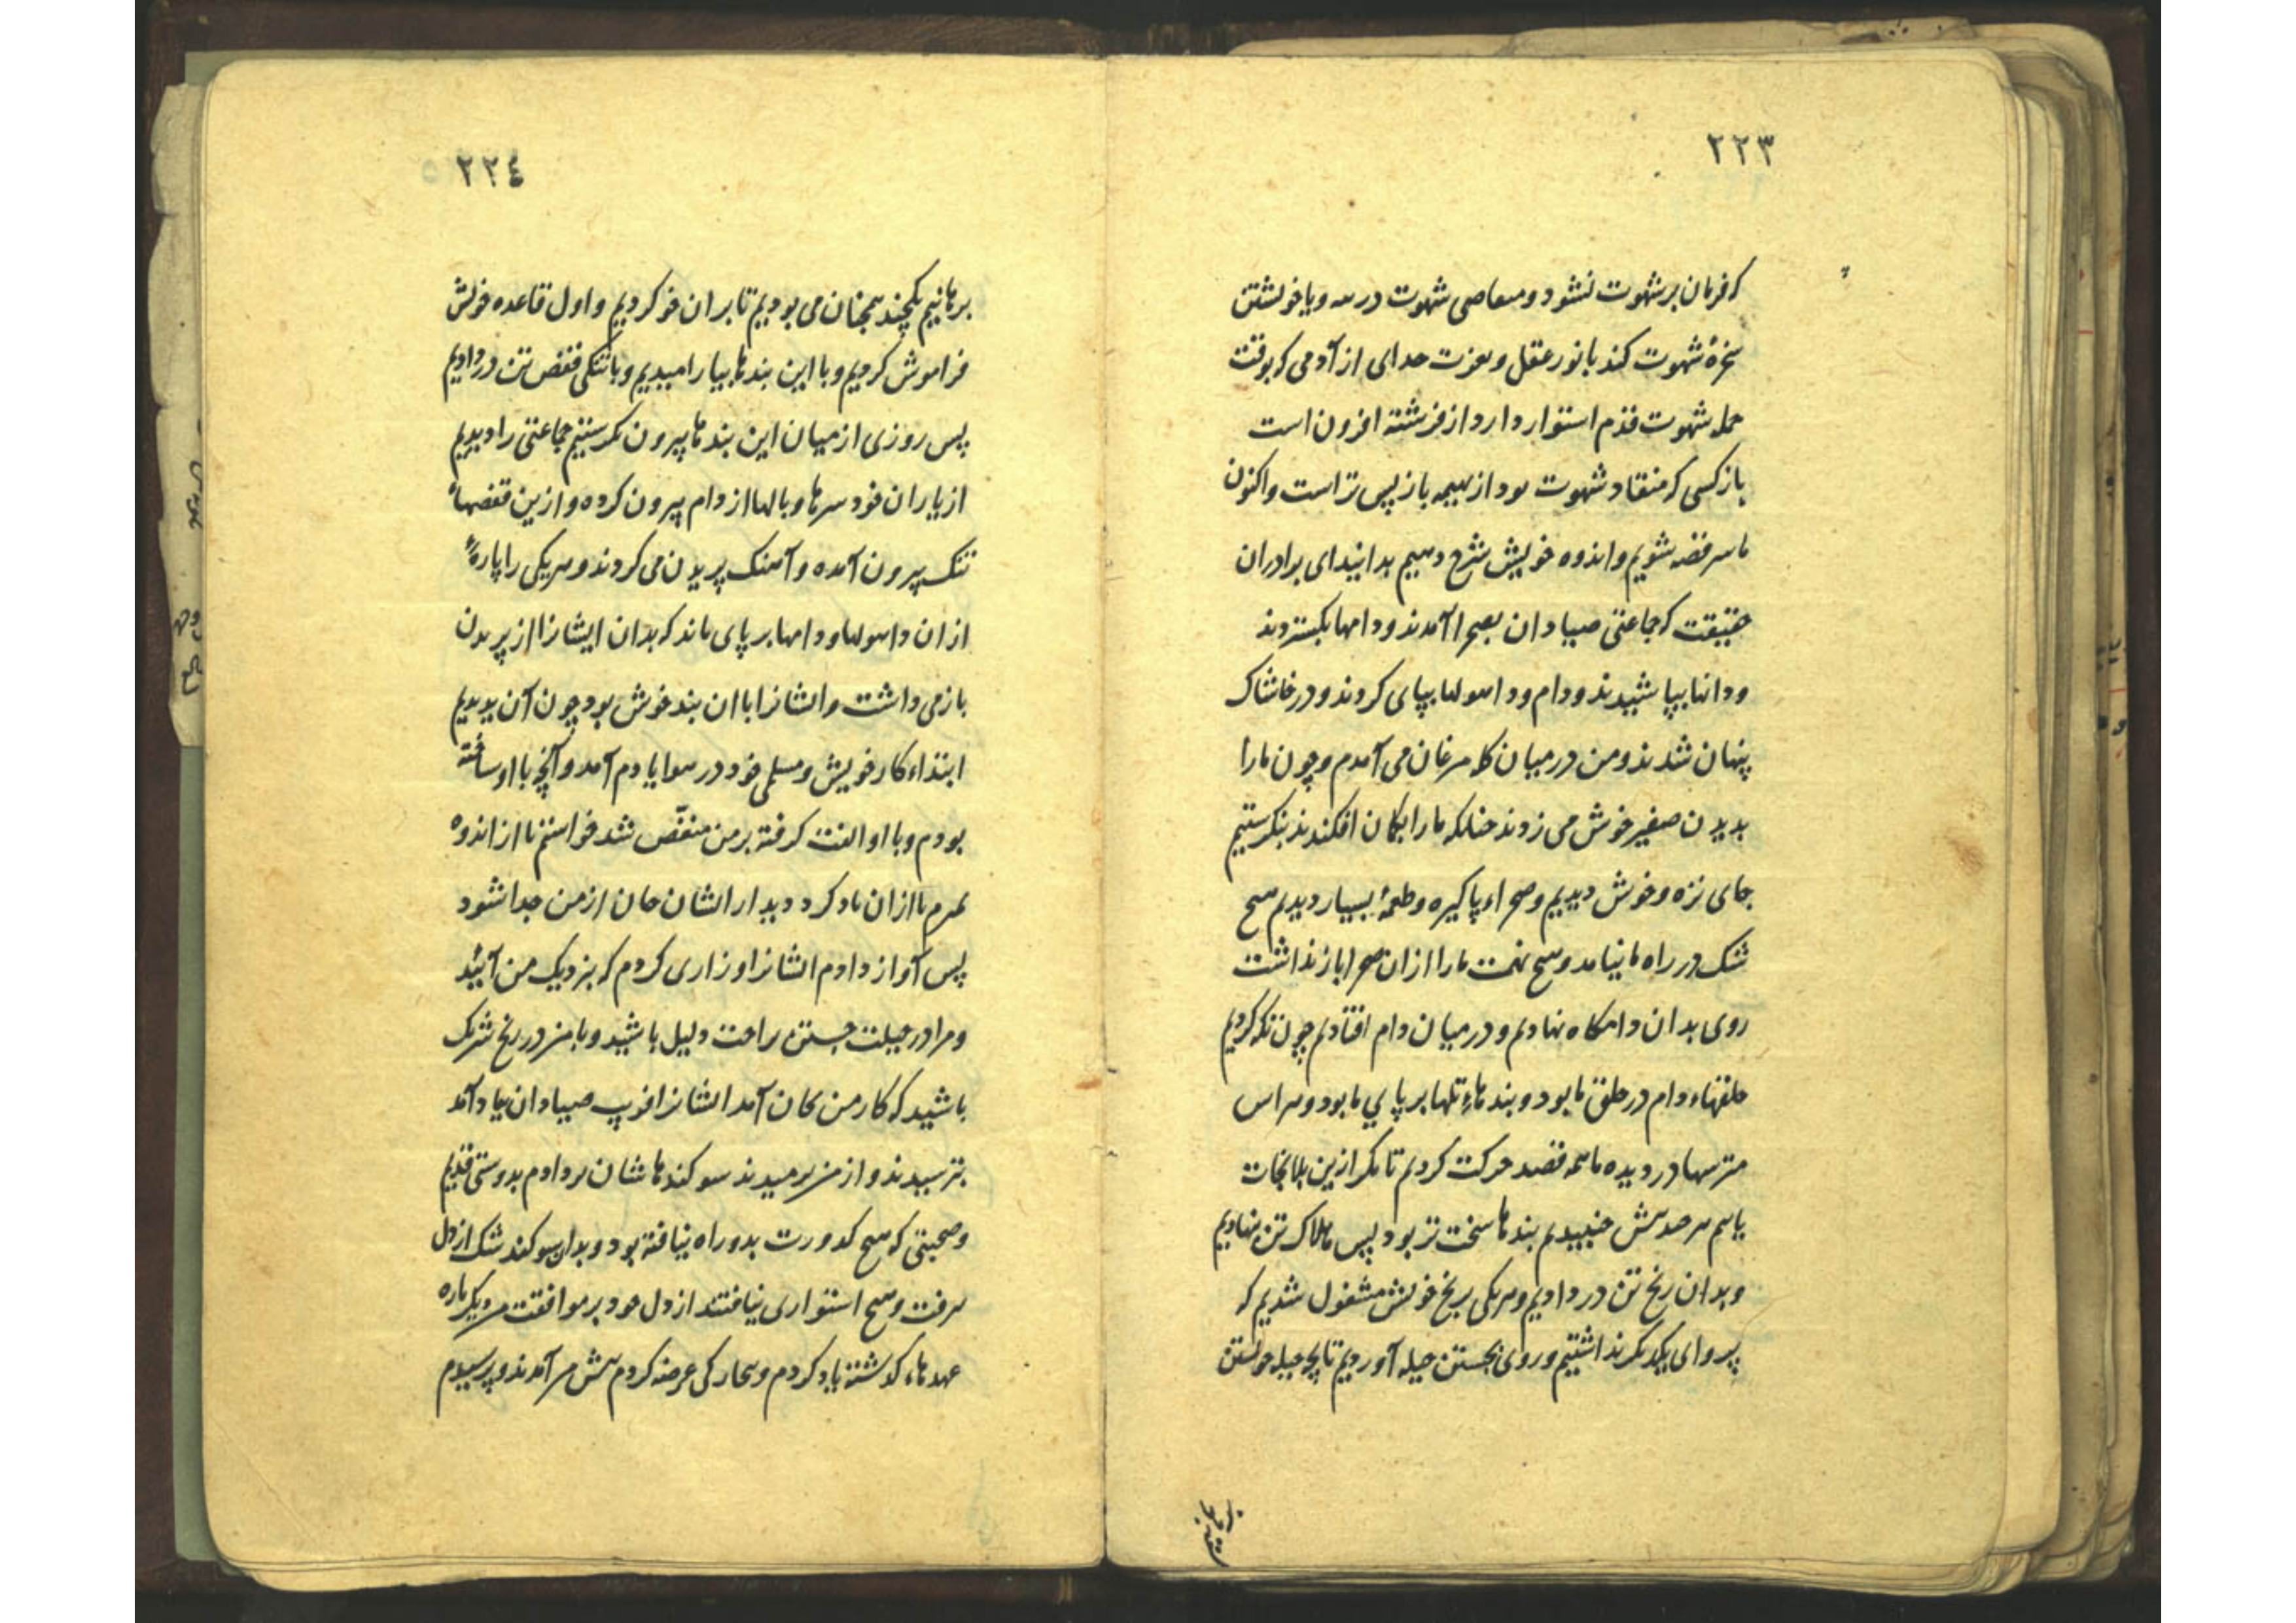 ٢٢٣
که فرمان بر شهوت نشود و معاصی شهوت در سه ویا خویشتن
سخرهٔ شهوت کند با نور عقل و بعزت خدای از آدمی که بوقت
حمله شهوت قدم استوار دارد از فرشته افزون است
باز کسی که منقاد شهوت بود از بهیمه باز پس تر است و اکنون
ما سر قصه شویم و اندوه خویش شرح دهیم بدانید ای برادران
حقیقت که جماعتی صیادان بصحرا آمدند و دامها بگستردند
و دانها بپاشیدند و دام و داهولها بپای کردند و در خاشاک
پنهان شدند و من در میان کلهٔ مرغان می آمدم و چون ما را
بدیدن صفیر خوش می زدند چنانکه ما را بگمان افکندند بنگرستیم
جای نزه و خوش دیدیم و صحراء پاکیزه و طعمهٔ بسیار دیدیم هیچ
شک در راه ما نیامد و هیچ تهمت ما را از ان صحرا باز نداشت
روی بدان دامگاه نهادیم و در میان دام افتادیم چون نگه کردیم
حلقهاء دام در حلق ما بود و بندهاء تلها بر پای ما بود و هراس
مترسها در دیده ما همه قصد حرکت کردیم تا مگر از ین بلا نجات
یابیم هر چند بیش جنبیدیم بندها سخت تر بود پس هلاک تن بنهادیم
و بدان رنج تن در دادیم و هر یکی برنج خویش مشغول شدیم که
پروای یکدیگر نداشتیم و روی بجستن حیله آوردیم تا بچه حیله خویشتن
٢٢٤
برهانیم یکچند همچنان می بودیم تا بر ان خو کردیم و اول قاعده خویش
فراموش کردیم و با این بندها بیارامیدیم و با تنگی قفص تن در دادیم
پس روزی از میان این بندها بیرون نگرستیم جماعتی را دیدیم
از یاران خود سرها و بالها از دام بیرون کرده و ازین قفصهاء
تنک بیرون آمده و آهنک پریدن می کردند و هر یکی را پارهٔ
از ان داهولها و دامها بر پای ماند که بدان ایشانرا از پریدن
باز می داشت و ایشانرا با ان بند خوش بود چون آن بدیدم
ابتداء کار خویش و مسلی خود در هوا یادم آمد و آنچه با او ساخته
بودم و با او الفت کرفته بر من منغّص شد خواستم تا از اندوه
بمیرم یا از ان یاد کرد دیدار ایشان جان از من جدا شود
پس آواز دادم ایشانرا و زاری کردم که بنزدیک من آئید
و مرا در حیلت جستن راحت دلیل باشید و با من در رنج شریک
باشید که کار من بجان آمد ایشانرا فریب صیادان یاد آمد
بترسیدند و از من برمیدند سوکندها شان بر دادم بدوستی قدیم
و صحبتی که هیچ کدورت بدو راه نیافته بود و بدان سوکند شک از دل
برفت و هیچ استواری نیافتند از دل خود بر موافقت من دیگر باره
عهدهاء کذشته یاد کردم و بیچارکی عرضه کردم پیش من آمدند و پرسیدم